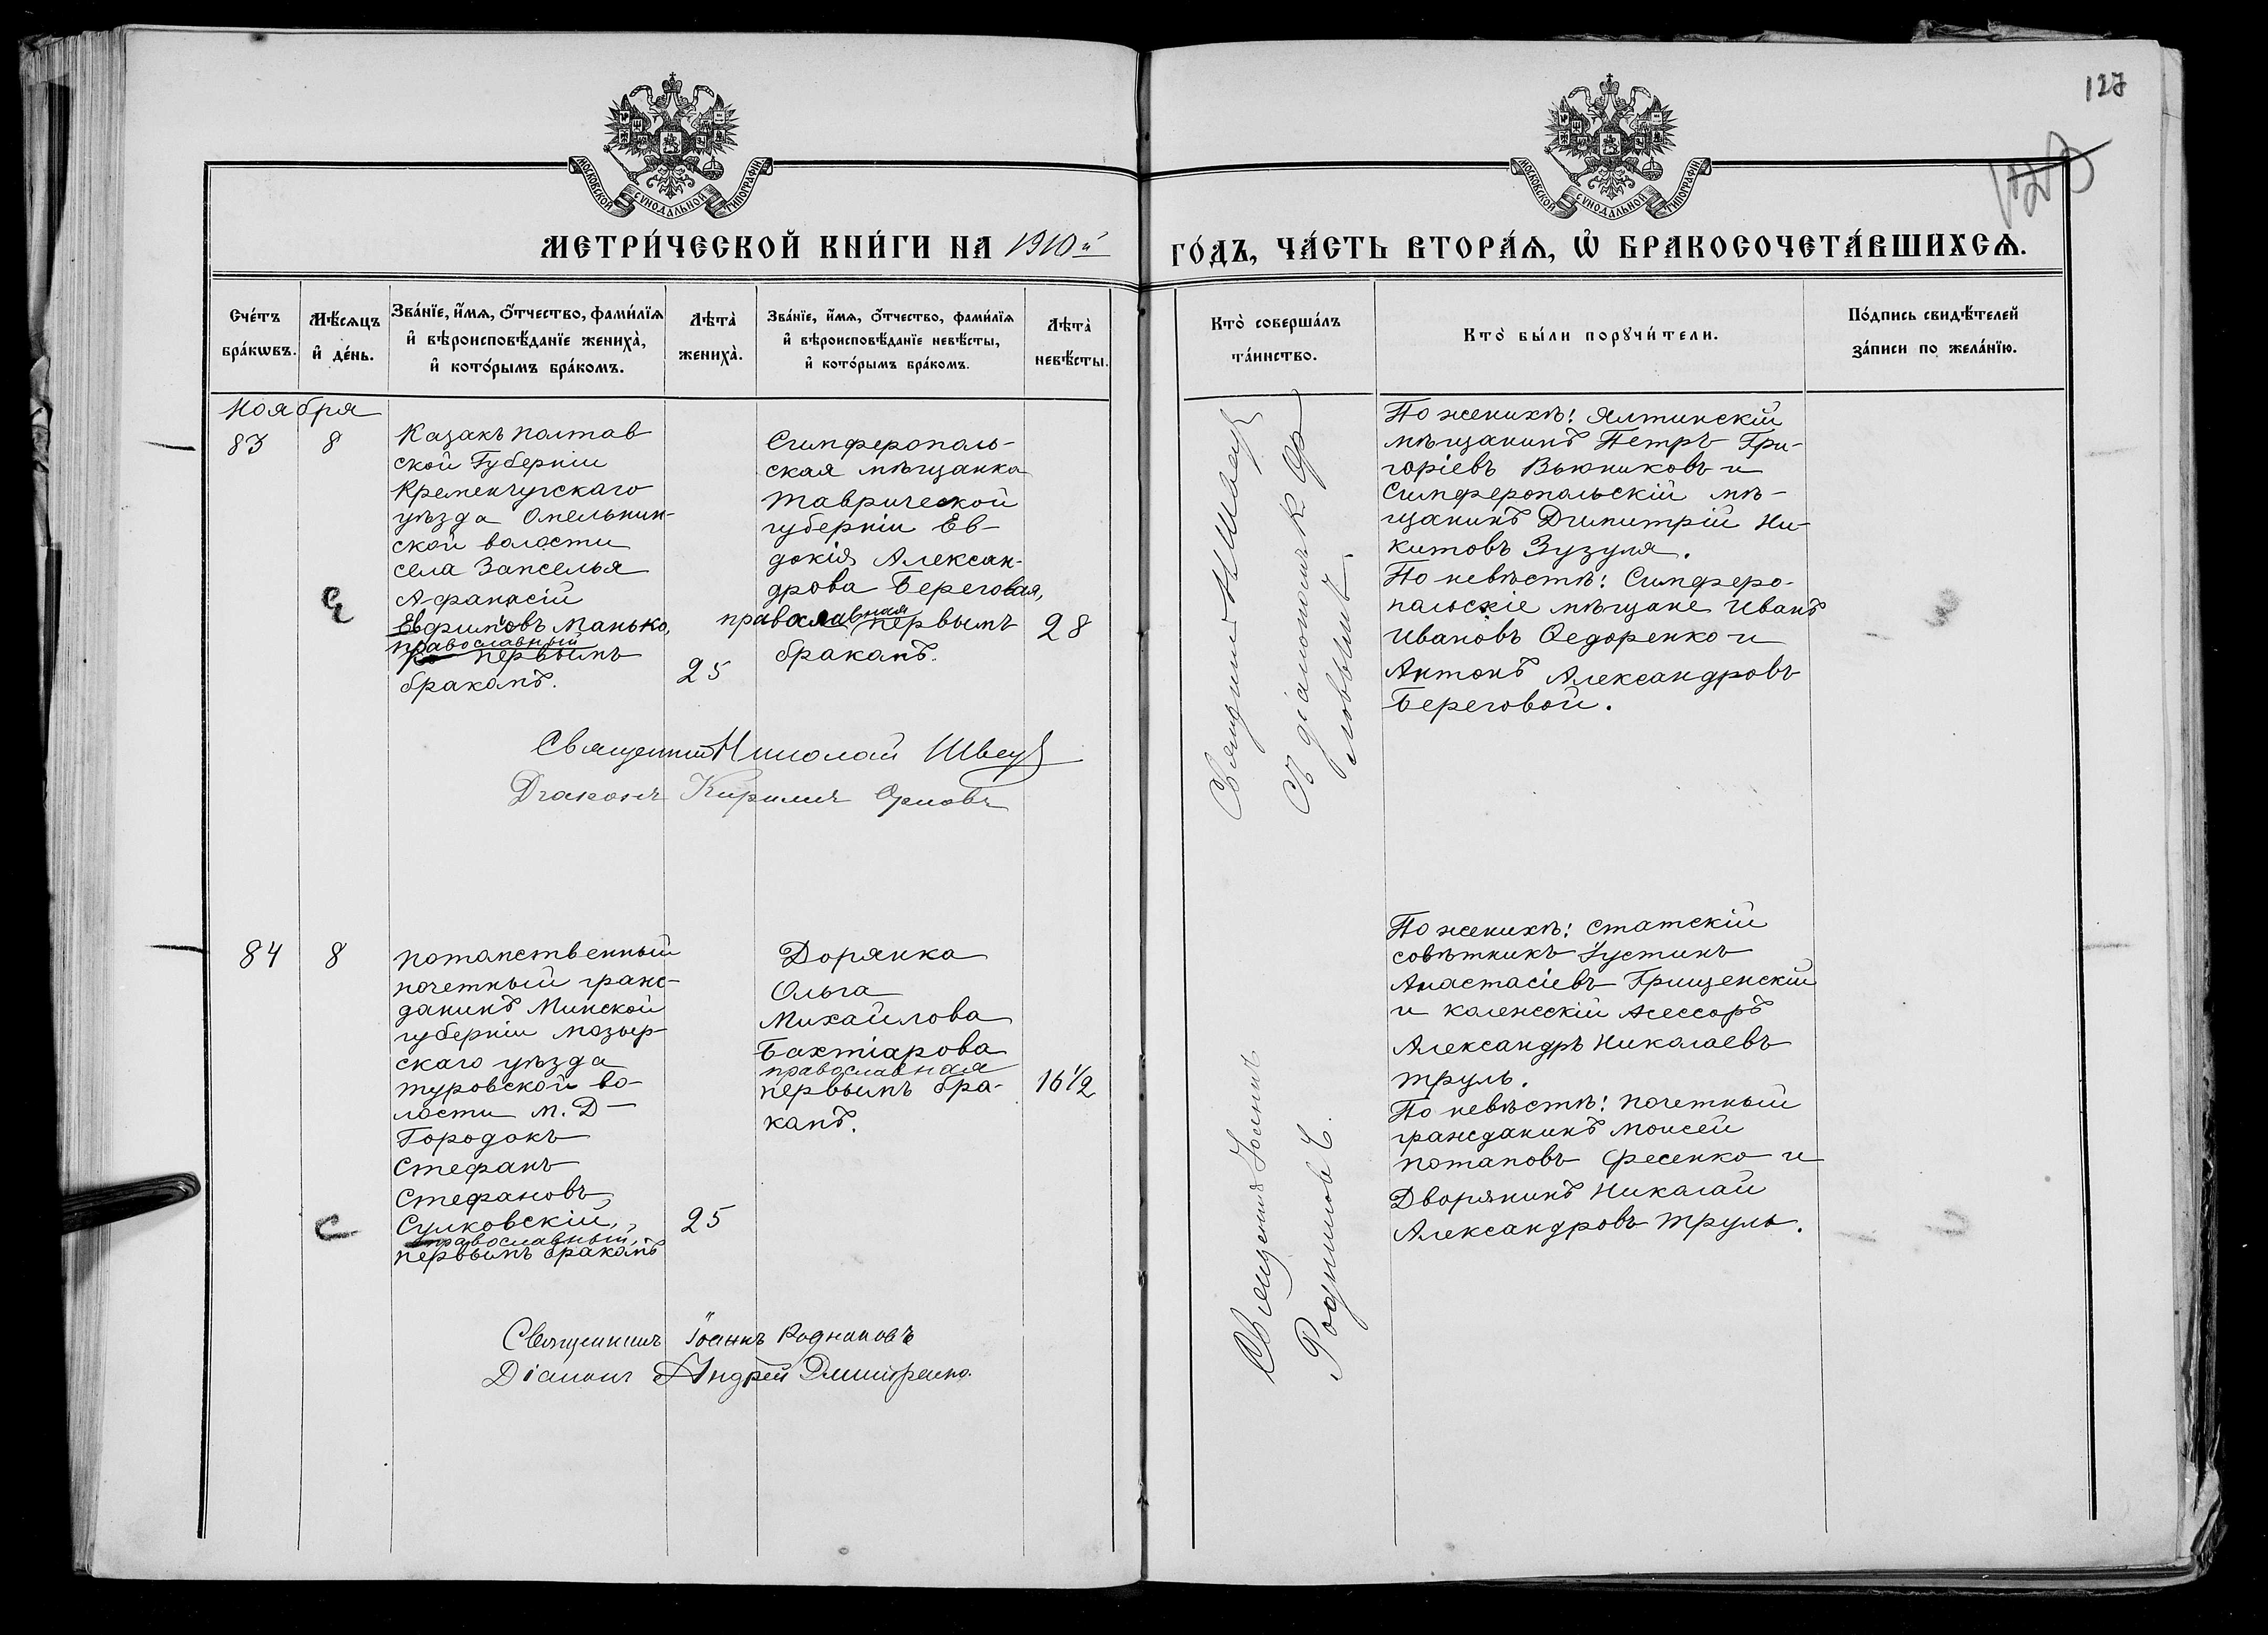 127
МОСКОВСКОЙ СѴНОДАЛЬНОЙ ТИПОГРАФІИ
МОСКОВСКОЙ СѴНОДАЛЬНОЙ ТИПОГРАФІИ
МЕТРИ́ЧЕСКОЙ КНИ́ГИ НА 1910й ГО́ДЪ, ЧА́СТЬ ВТОРА́Ѧ, Ѡ҆ БРАКОСОЧЕТА́ВШИХСѦ.
Сче́тъ
бра́кѡвъ.
Мѣ́сѧцъ
и҆ де́нь.
Зва́нїе, и҆́мѧ, ѻ҆́тчество, фами́лїѧ
и҆ вѣроисповѣ́данїе жениха̀,
и҆ кото́рымъ бра́комъ.
Лѣта̀
жениха̀.
Зва́нїе, и҆́мѧ, ѻ҆́тчество, фами́лїѧ
и҆ вѣроисповѣ́данїе невѣ́сты,
и҆ кото́рымъ бра́комъ.
Лѣта̀
невѣ́сты.
Кто̀ соверша́лъ
та́инство.
Кто̀ бы́ли порꙋчи́тели.
По́дпись свидѣ́телей
за́писи по жела́нїю.
Ноября
83
8
Казакъ Полтав
ской Губерніи
Кременчугскаго
уѣзда Омельник-
ской волости
села Запселья
Афанасій
Евфимовъ Манько,
православный
первымъ
бракомъ.
25
Симферополь-
ская мѣщанка
Таврической
губерніи Ев-
докія Алексан-
дрова Береговая,
православная первымъ
бракомъ.
28
Священникъ Н Швец
Съ діакономъ К Ор
ловымъ.
По женихѣ: Ялтинскій
мѣщанинъ Петръ Гри-
горіевъ Вьюниковъ и
Симферопольскій мѣ-
щанинъ Димитрій Ни-
китовъ Зузуля.
По невѣстѣ: Симферо-
польскіе мѣщане Иванъ
Ивановъ Ѳедоренко и
Антонъ Александровъ
Береговой.
Священник Николай Швец
Діаконъ Кириллъ Орловъ
84
8
Потомственный
почетный граж-
данинъ Минской
губерніи Мозыр-
скаго уѣзда
Туровской во-
лости м. Д-
Городокъ
Стефанъ
Стефановъ
Сулковскій,
православный,
первымъ бракомъ
25
Дорянка
Ольга
Михайлова
Бахтіарова
православная
первымъ бра-
комъ.
16 1/2
Священникъ Іоаннъ
Родниковъ
По женихѣ: Статскій
совѣтникъ Іустинъ
Анастасіевъ Грищенскій
и коллежскій Асессоръ
Александръ Николаевъ
Труль.
По невѣстѣ: Почетный
гражданинъ Моисей
Потаповъ Фесенко и
Дворянинъ Николай
Александровъ Труль.
Священникъ Іоаннъ Родниковъ
Діаконъ Андрей Дмитренко.